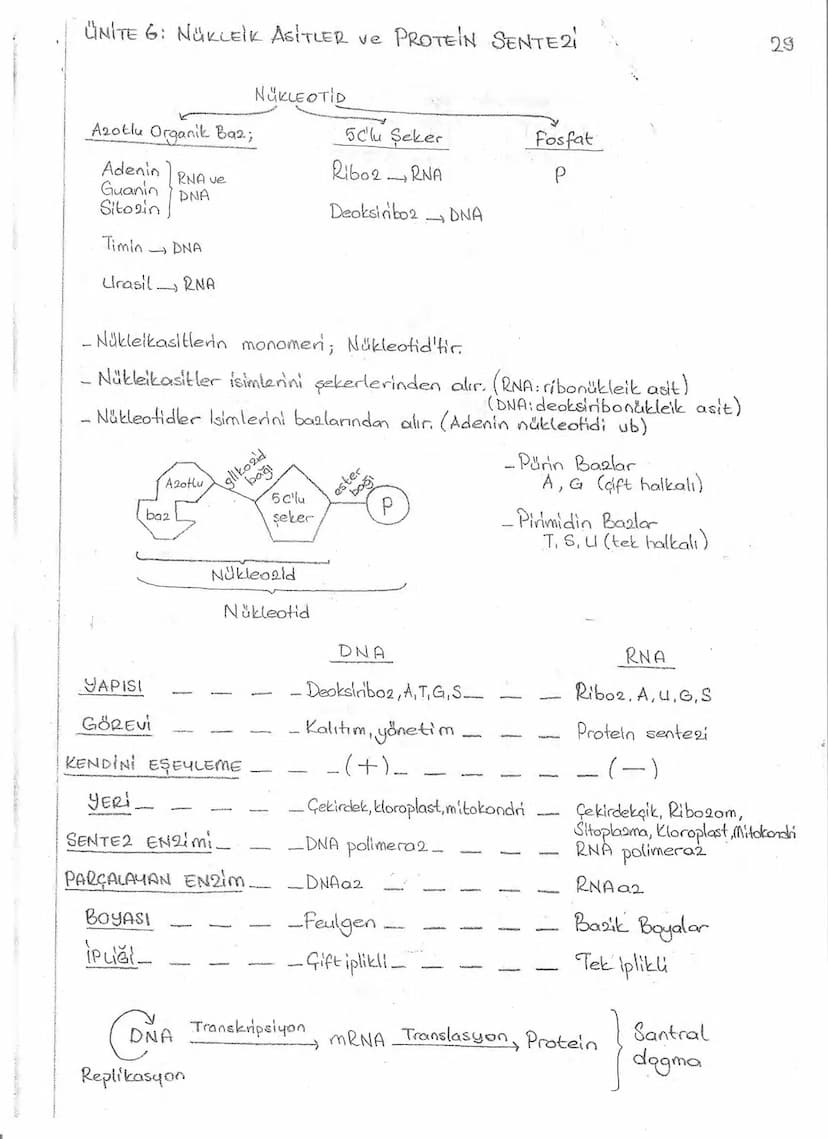 ÜNİTE 6: NÜKLEİK ASİTLER ve PROTEİN SENTEZİ
29
NÜKLEOTİD
Azotlu Organik Baz; 5C'lu Şeker Fosfat
Adenin
Guanin
Sitozin
RNA ve
DNA
Riboz → RNA
P
Deoksiriboz → DNA
Timin → DNA
Urasil → RNA
- Nükleikasitlerin monomeri; Nükleotid'tir.
- Nükleikasitler isimlerini şekerlerinden alır. (RNA: ribonükleik asit)
(DNA: deoksiribonükleik asit)
- Nükleotidler isimlerini bazlarından alır. (Adenin nükleotidi vb)
Azotlu
baz
glikozid
bağı
5C'lu
şeker
ester
bağı
P
Nükleozid
Nükleotid
- Pürin Bazlar
A, G (çift halkalı)
- Pirimidin Bazlar
T, S, U (tek halkalı)
DNA RNA
YAPISI — — — - Deoksiriboz, A, T, G, S — — — Riboz, A, U, G, S
GÖREVİ — — — - Kalıtım, yönetim — — — Protein sentezi
KENDİNİ EŞEYLEME — — - (+) - — — — — (—)
YERİ — — — — Çekirdek, kloroplast, mitokondri — Çekirdekçik, Ribozom,
Sitoplazma, Kloroplast, Mitokondri
SENTEZ ENZİMİ — — — DNA polimeraz — — — — RNA polimeraz
PARÇALAYAN ENZİM — — DNAaz — — — — — RNAaz
BOYASI — — — — Feulgen — — — — — Bazik Boyalar
İPLİĞİ — — — — - Çift iplikli — — — — Tek iplikli
DNA Transkripsiyon → mRNA Translasyon → Protein
Replikasyon
Santral
dogma